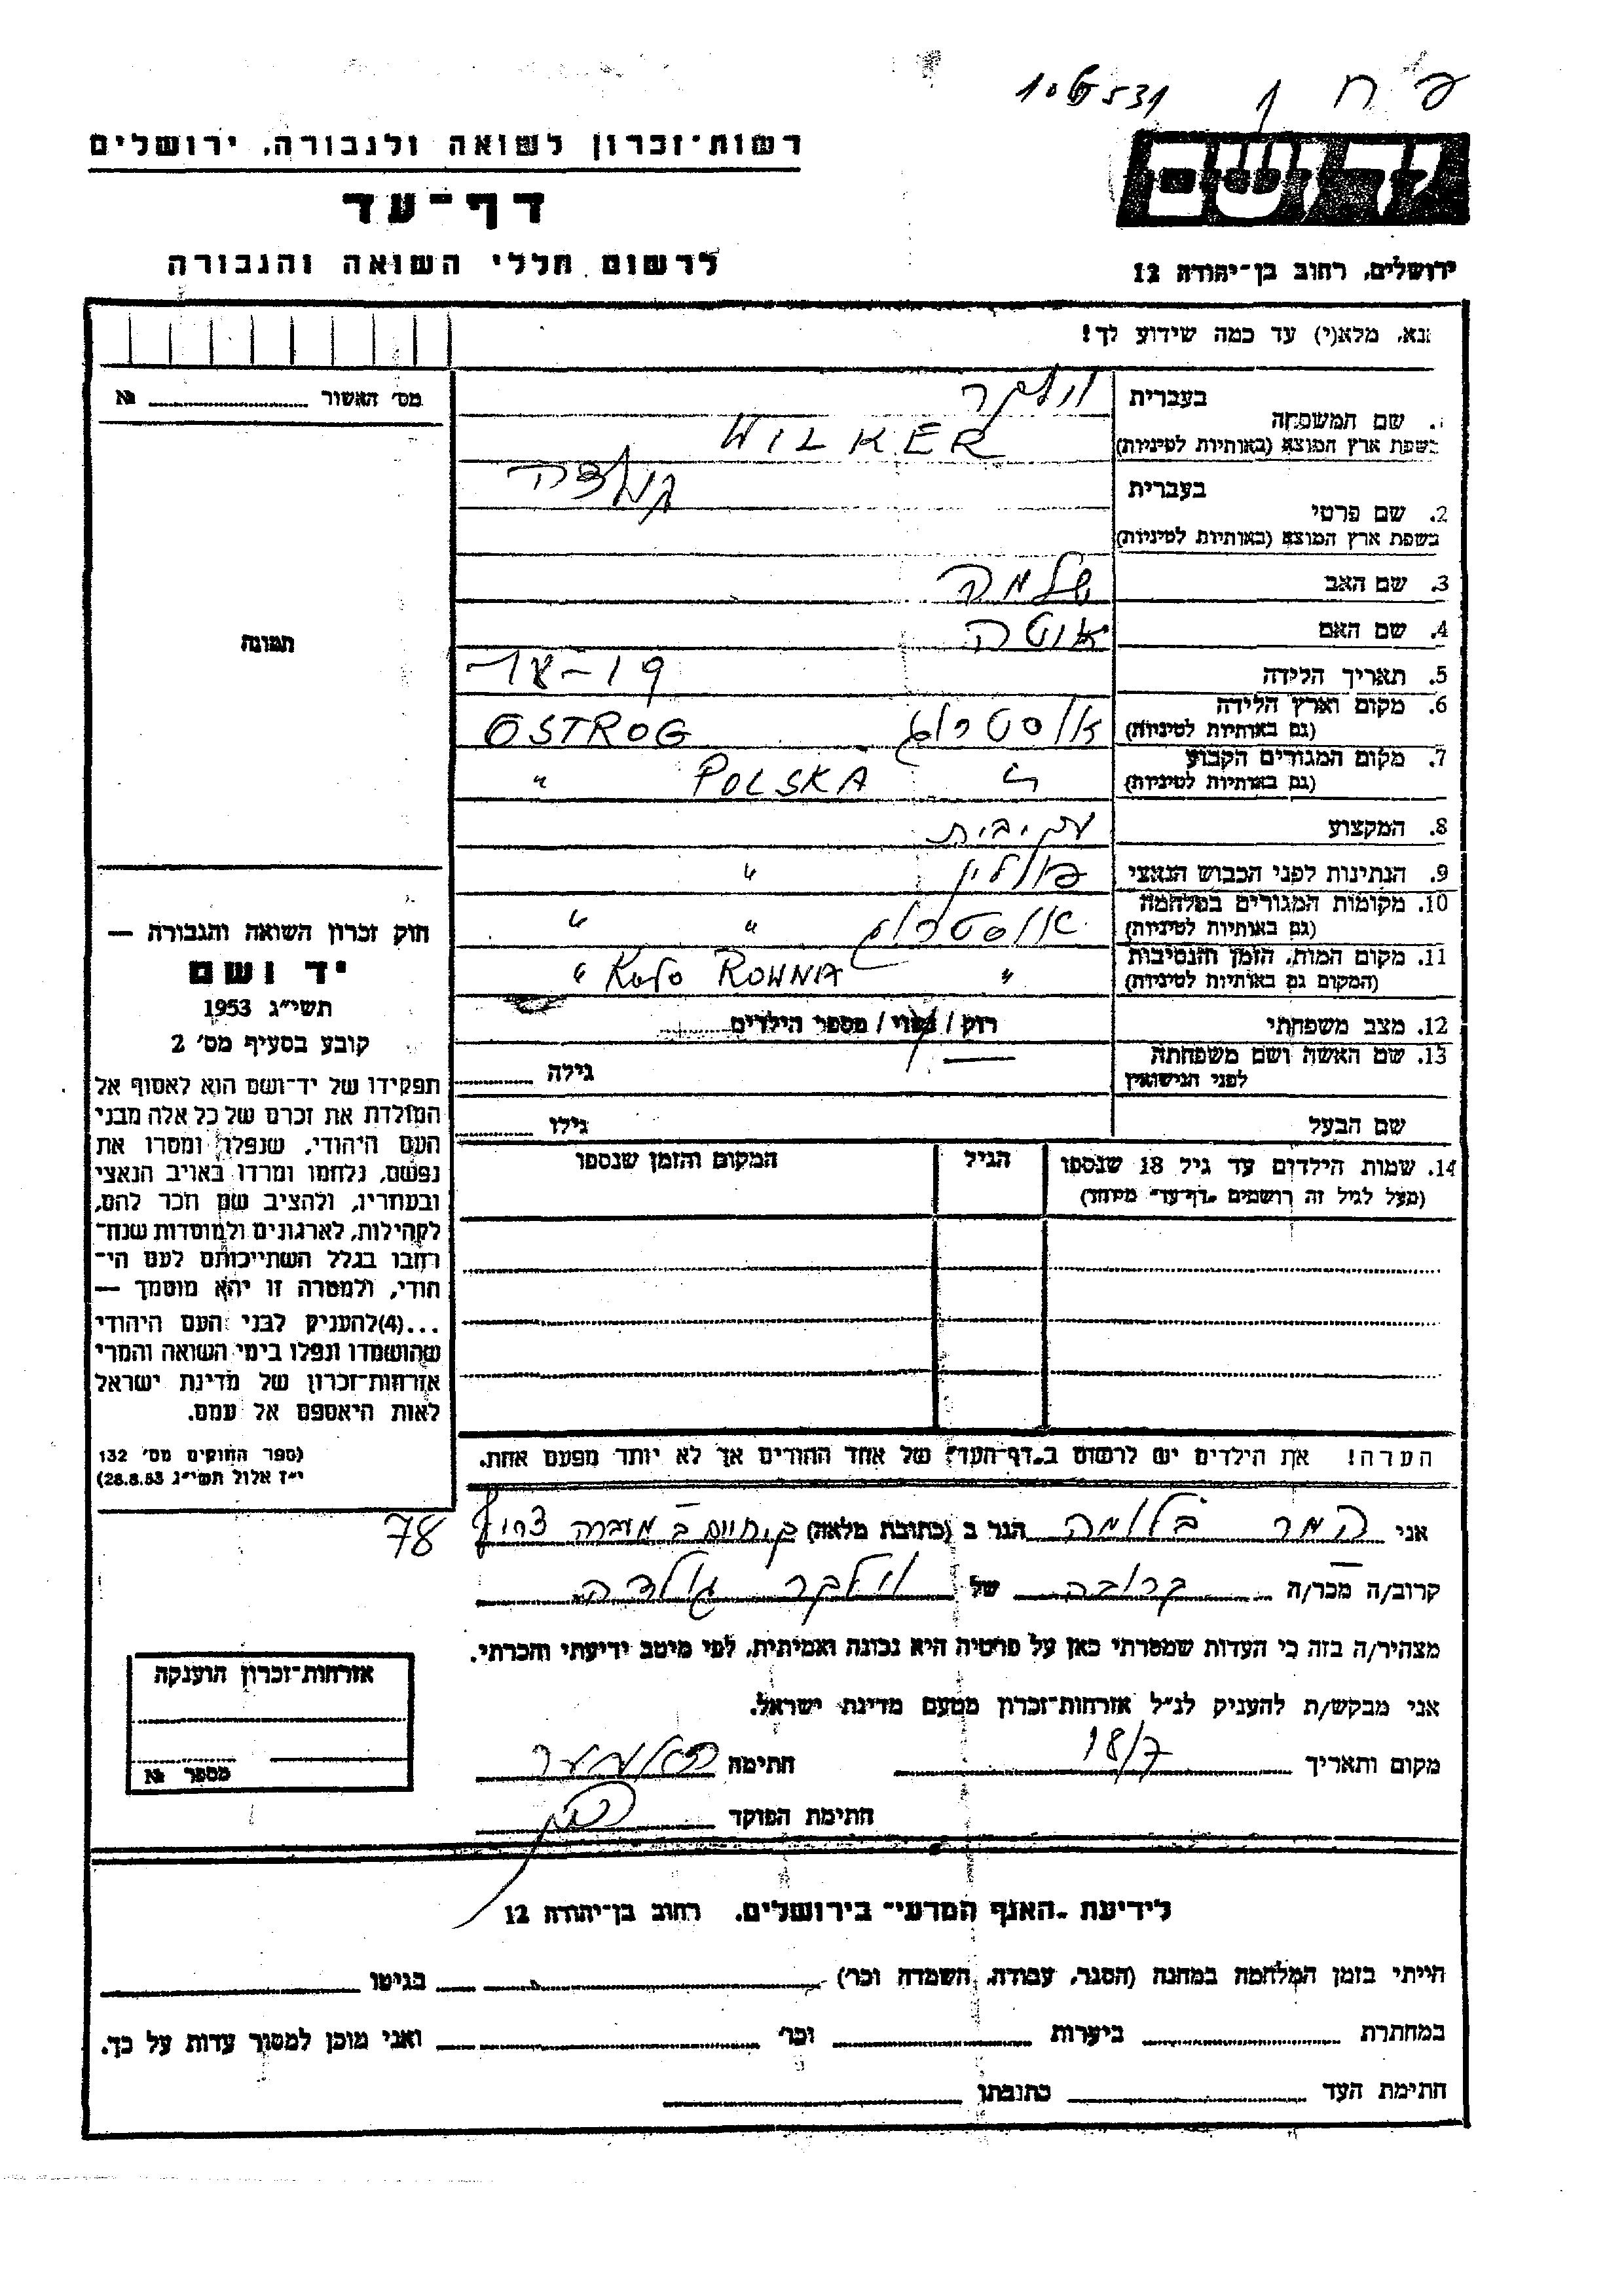 רשות-זכרון לשואה ולגבורה, ירושלים
דף-עד
לרשום חללי השואה והגבורה
ירושלים, רחוב בן-יהודה 12
נא, מלא(י) עד כמה שידוע לך!
מס' האשור № 
בעברית
שם המשפחה
בשפת ארץ המוצא (באותיות לטיניות)
וילקר
WILKER
בעברית
2. שם פרטי
בשפת ארץ המוצא (באותיות לטיניות)
3. שם האב שלמה
4. שם האם אוטה
5. תאריך הלידה
6. מקום וארץ הלידה
(גם באותיות לטיניות)
אוסטרוג OSTROG
7. מקום המגורים הקבוע
(גם באותיות לטיניות)
" POLSKA "
8. המקצוע
9. הנתינות לפני הכבוש הנאצי פולין "
10. מקומות המגורים במלחמה
(גם באותיות לטיניות)
אוסטרוג " "
11. מקום המות, הזמן והנסיבות
(המקום גם באותיות לטיניות)
" KOŁO ROWNIA "
12. מצב משפחתי רווק / נשוי / מספר הילדים
13. שם האשה ושם משפחתה
לפני הנישואין
גילה
שם הבעל גילו
14. שמות הילדים עד גיל 18 שנספו
(מעל לגיל זה רושמים "דף-עד" מיוחד)
הגיל
המקום והזמן שנספו
הערה! את הילדים יש לרשום ב"דף-העד" של אחד ההורים אך לא יותר מפעם אחת.
תמונה
חוק זכרון השואה והגבורה —
יד ושם
תשי"ג 1953
קובע בסעיף מס' 2
תפקידו של יד-ושם הוא לאסוף אל
המולדת את זכרם של כל אלה מבני
העם היהודי, שנפלו ומסרו את
נפשם, נלחמו ומרדו באויב הנאצי
ובעוזריו, ולהציב שם וזכר להם,
לקהילות, לארגונים ולמוסדות שנח-
רחבו בגלל השתייכותם לעם הי-
הודי, ולמטרה זו יהא מוסמך —
...(4)להעניק לבני העם היהודי
שהושמדו ונפלו בימי השואה והמרי
אזרחות-זכרון של מדינת ישראל
לאות היאספם אל עמם.
(ספר החוקים מס' 132
י"ז אלול תשי"ג 28.8.53)
אני המר בלומה הגר ב (כתובת מלאה) ק. חיים ב מעברה צריף 78
קרוב/ה מכר/ה קרובה של וילקר גולדה
מצהיר/ה בזה כי העדות שמסרתי כאן על פרטיה היא נכונה ואמיתית, לפי מיטב ידיעתי והכרתי.
אני מבקש/ת להעניק לנ"ל אזרחות-זכרון מטעם מדינת ישראל.
מקום ותאריך 18/7 חתימה
חתימת הפוקד
אזרחות-זכרון הוענקה
מספר №
לידיעת "האגף המדעי" בירושלים, רחוב בן-יהודה 12
הייתי בזמן המלחמה במחנה (הסגר, עבודה, השמדה וכו') בגיטו
במחתרת ביערות וכו' ואני מוכן למסור עדות על כך.
חתימת העד כתובתו